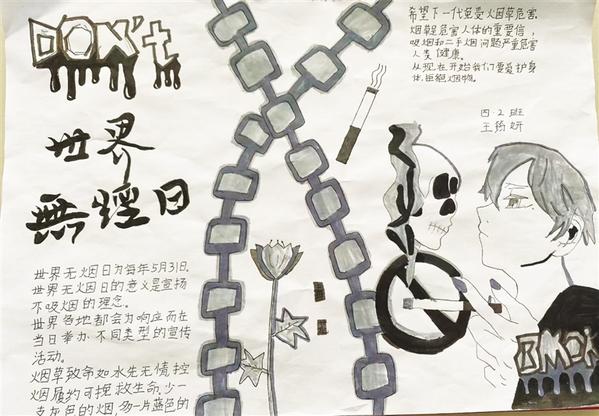 DON't
世界
無煙日
世界无烟日为每年5月31日.
世界无烟日的意义是宣扬
不吸烟的理念。
世界各地都会为响应而在
当日举办不同类型的宣传
活动。
烟草致命如水先无情,控
烟履约可挽救生命.少一
支灰色的烟,多一片蓝色的
希望下一代免受烟草危害.
烟草是危害人体的重要信,
吸烟和二手烟问题严重危害
人类健康。
从现在开始我们要爱护身
体,拒绝烟物。
四·2班
王扬妍